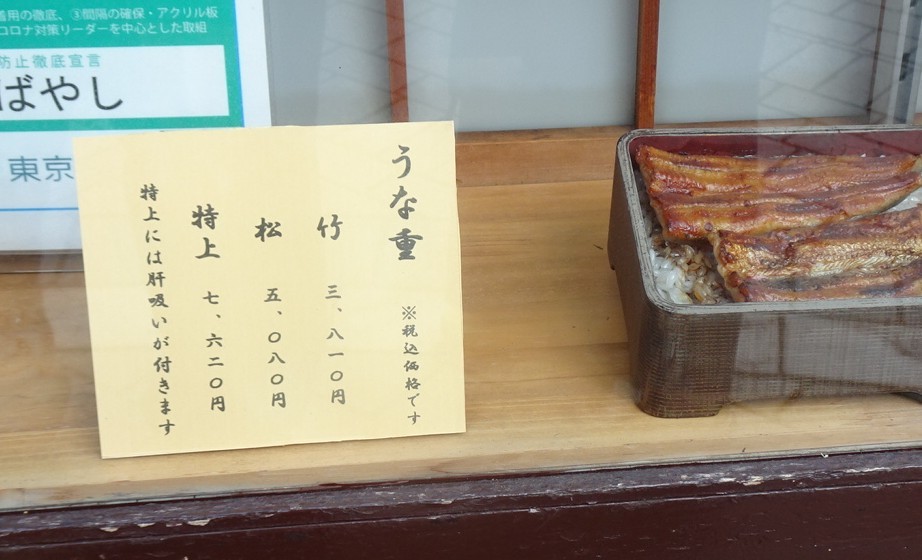 着用の徹底、③間隔の確保・アクリル板
コロナ対策リーダーを中心とした取組
防止徹底宣言
ばやし
東京
うな重
※税込価格です
竹 三、八一〇円
松 五、〇八〇円
特上 七、六二〇円
特上には肝吸いが付きます